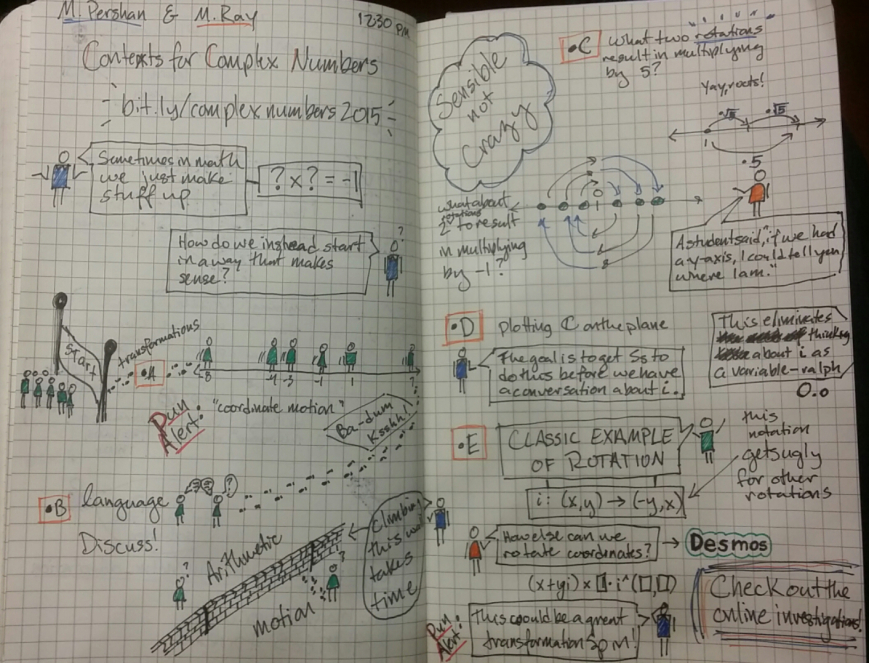 M. Pershan & M. Ray
12:30 PM
Contexts for Complex Numbers
bit.ly/complexnumbers2015
Sometimes in math
we just make
stuff up
? x ? = -1
How do we instead start
in a way that makes
sense?
Start
transformations
•A
-8
-4
-3
-1
1
?
Pun
Alert:
"coordinate motion"
Ba-dum
Ksshh!
•B
language
Discuss!
Arithmetic
motion
Climbing
this wall
takes
time
Sensible
not
Crazy
•C
what two rotations
result in multiplying
by 5?
Yay, roots!
•√5
•√5
1
•5
what about
2 rotations to result
in multiplying
by -1?
A student said, "if we had
a y-axis, I could tell you
where I am."
•D
plotting ℂ on the plane
The goal is to get Ss to
do this before we have
a conversation about i.
This eliminates
thinking
about i as
a variable-ralph
O.o
•E
CLASSIC EXAMPLE
OF ROTATION
this
notation
gets ugly
for other
rotations
i: (x,y) → (-y,x)
How else can we
rotate coordinates?
→ Desmos
(x+yi) x □ · i^(□,□)
Pun
Alert:
This could be a great
transformation
Check out the
online investigations!